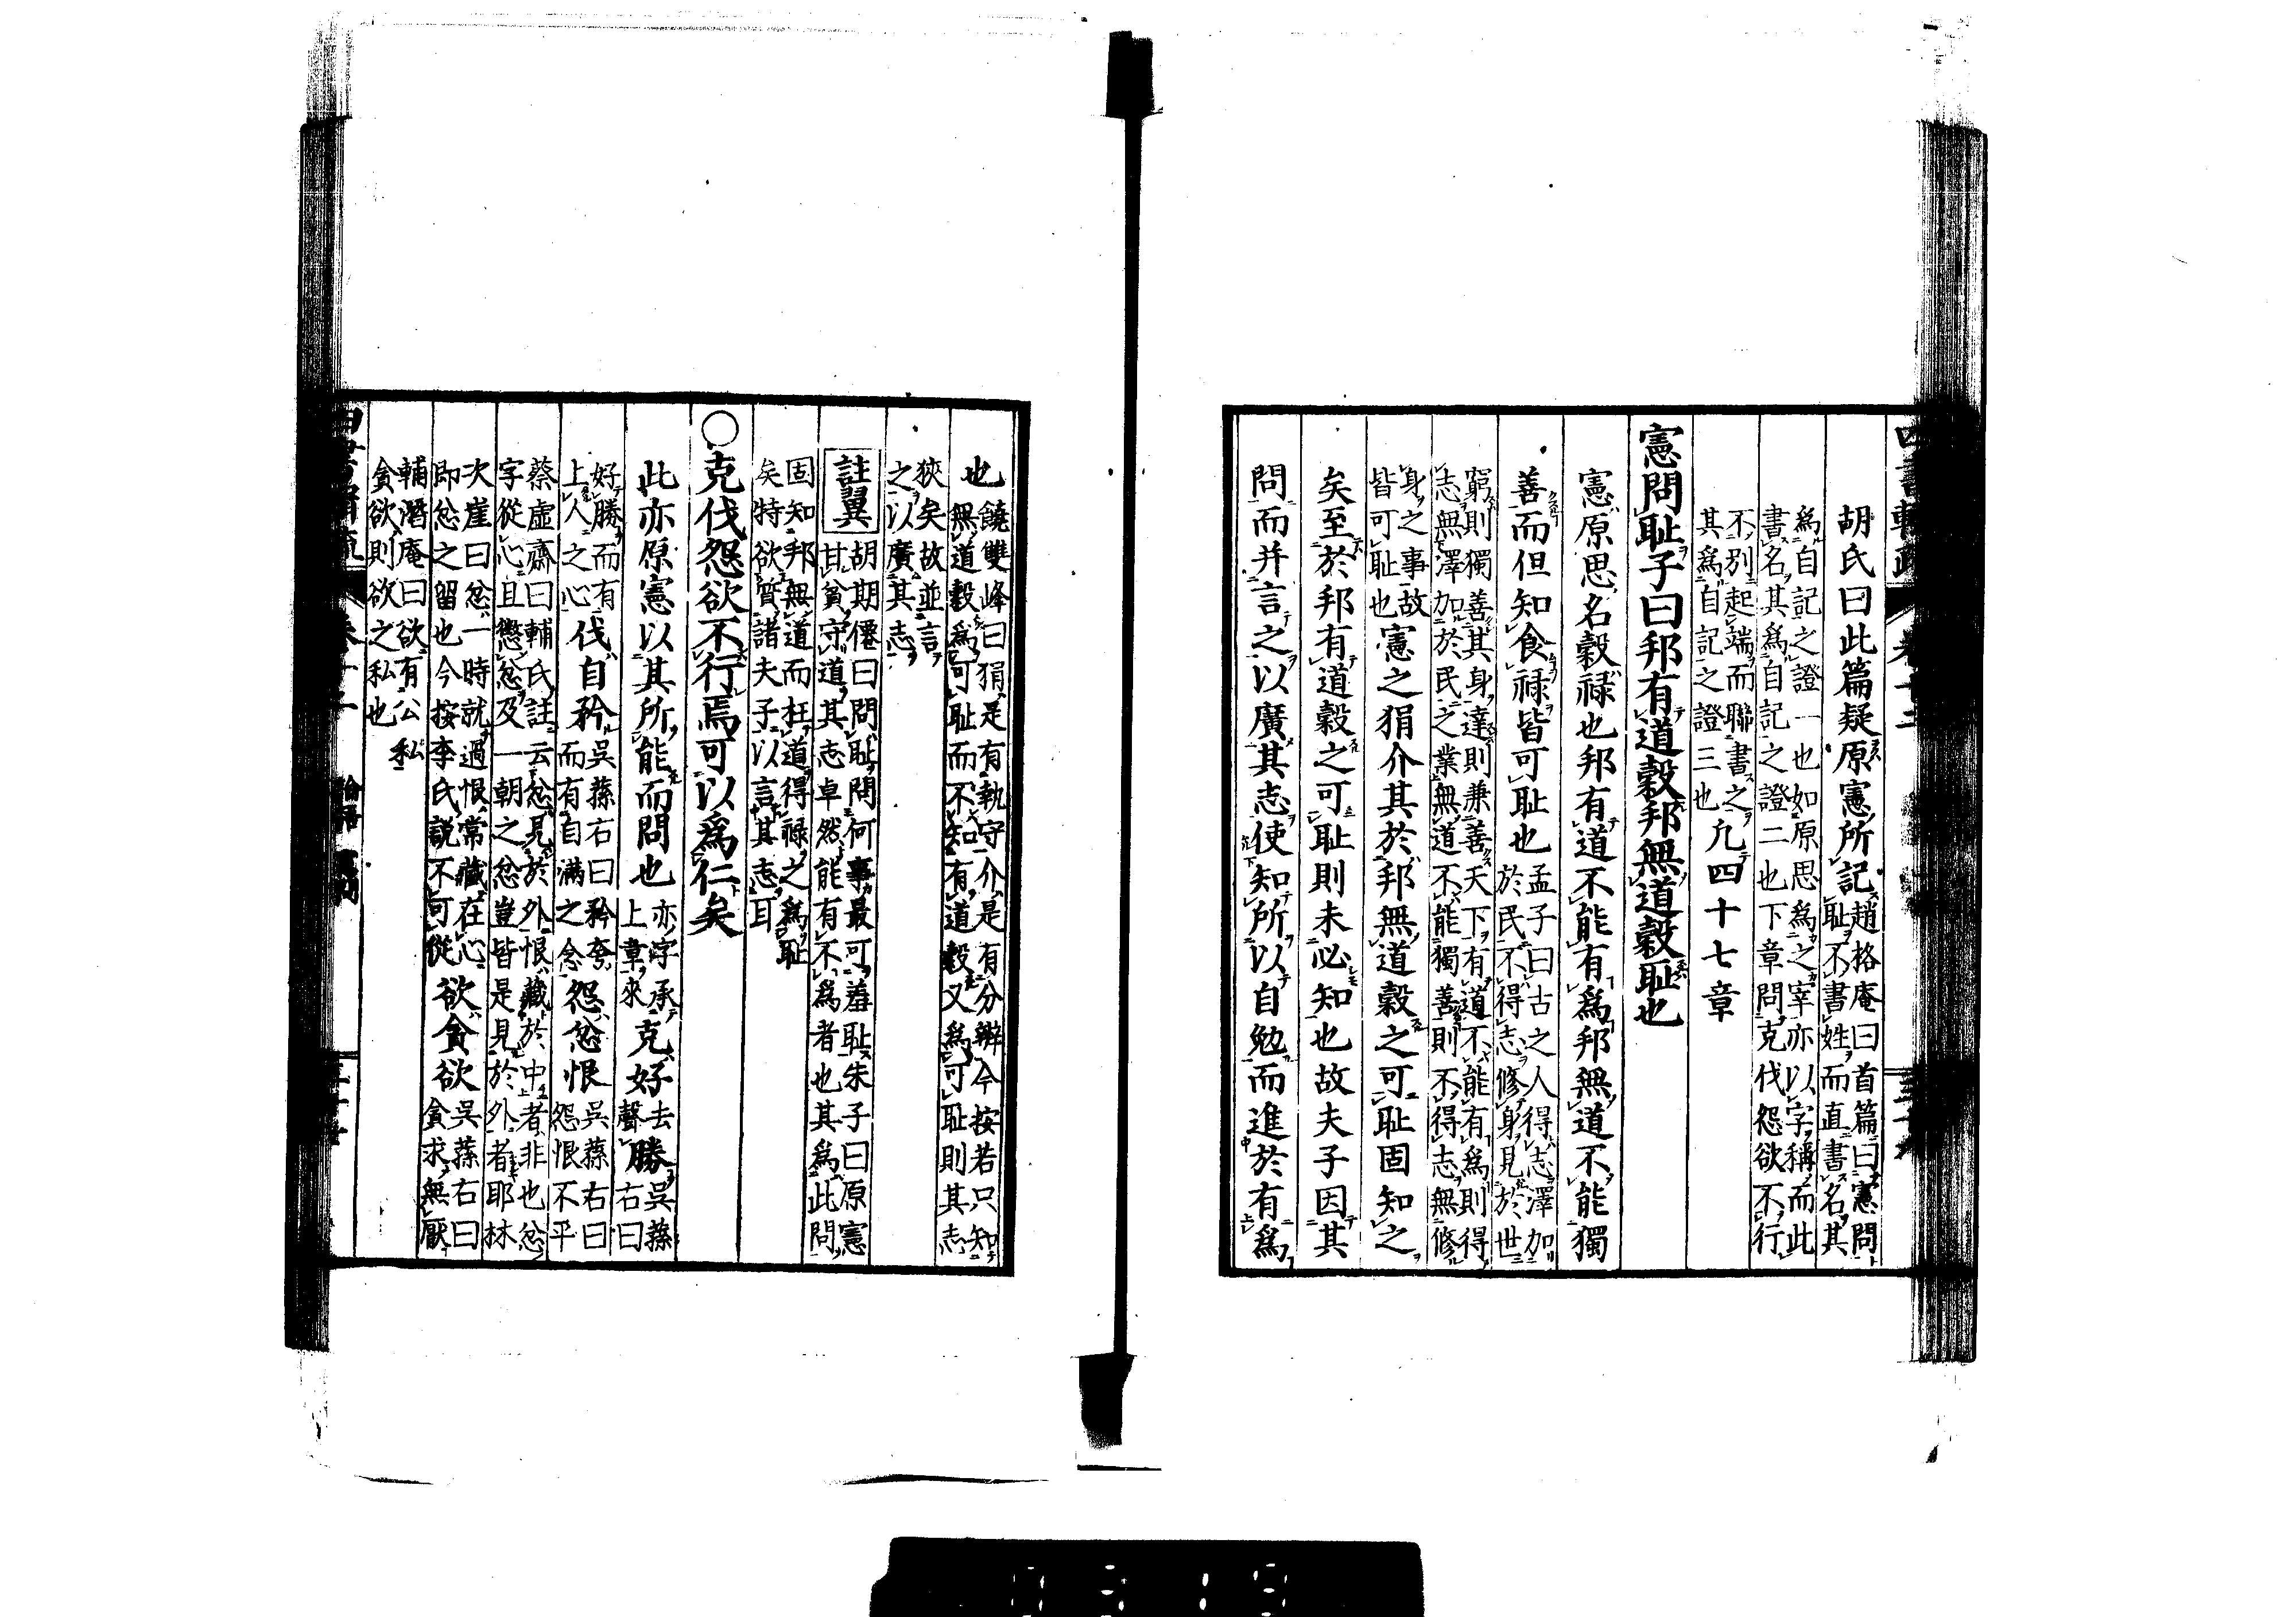 胡氏曰此篇疑原憲所記趙格庵曰首篇曰憲問
恥不書姓而直書名其
爲自記之證一也如原思爲之宰亦以字稱而此
書名其爲自記之證二也下章問克伐怨欲不行
不別起端而聯書之
其爲自記之證三也凡四十七章
憲問恥子曰邦有道穀邦無道穀恥也
憲原思名穀祿也邦有道不能有爲邦無道不能獨
善而但知食祿皆可恥也孟子曰古之人得志澤加
於民不得志修身見於世
窮則獨善其身達則兼善天下有道不能有爲則得
志無澤加於民之業無道不能獨善則不得志無修
身之事故
皆可恥也憲之狷介其於邦無道穀之可恥固知之
矣至於邦有道穀之可恥則未必知也故夫子因其
問而并言之以廣其志使知所以自勉而進於有爲
也饒雙峰曰狷是有執守介是有分辨今按若只知
無道穀爲可恥而不知有道穀又爲可恥則其志
狹矣故並言
之以廣其志
註翼胡期僊曰問恥問何事最可羞恥朱子曰原憲
甘貧守道其志卓然能有不爲者也其爲此問
固知邦無道而枉道得祿之爲恥
矣特欲質諸夫子以言其志耳
○克伐怨欲不行焉可以爲仁矣
此亦原憲以其所能而問也亦字承
上章來克好去
聲勝吳蓀
右曰
好勝而有
上人之心伐自矜吳蓀右曰矜夸
而有自滿之念怨忿恨吳蓀右曰
怨恨不平
蔡虛齋曰輔氏註云忿見於外恨藏於中者非也忿
字從心且懲忿及一朝之忿豈皆是見於外者耶林
次崖曰忿一時就過恨常藏在心
即忿之留也今按李氏說不可從欲貪欲吳蓀右曰
貪求無厭
輔潛庵曰欲有公私
貪欲則欲之私也